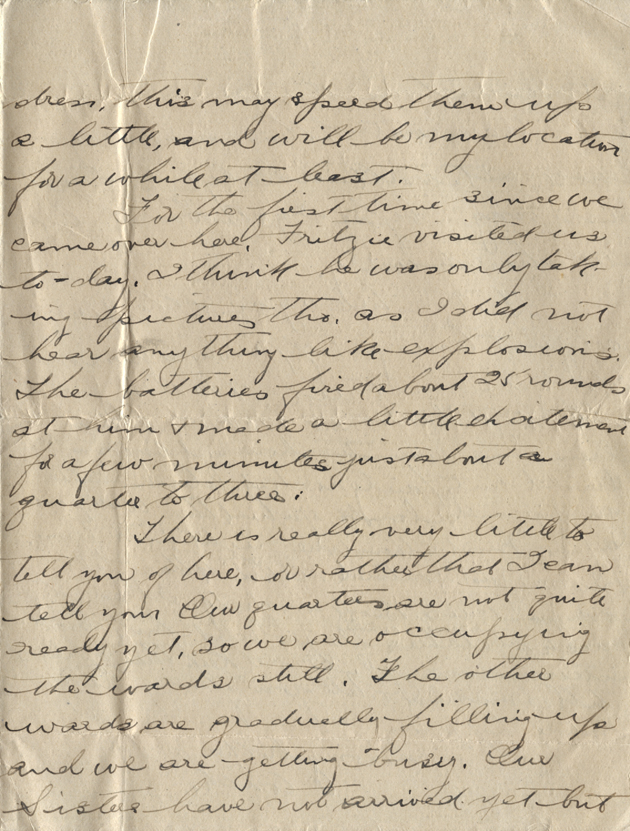 dress, this may speed them up
a little, and will be my location
for a while at least.
For the first time since we
came over here, Fritzie visited us
to-day. I think he was only tak-
ing pictures tho. as I did not
hear anything like explosions.
The batteries fired about 25 rounds
at him & made a little excitement
for a few minutes just about a
quarter to three.
There is really very little to
tell you of here, or rather that I can
tell you. Our quarters are not quite
ready yet, so we are occupying
the wards still. The other
wards are gradually filling up
and we are getting busy. Our
Sisters have not arrived yet but